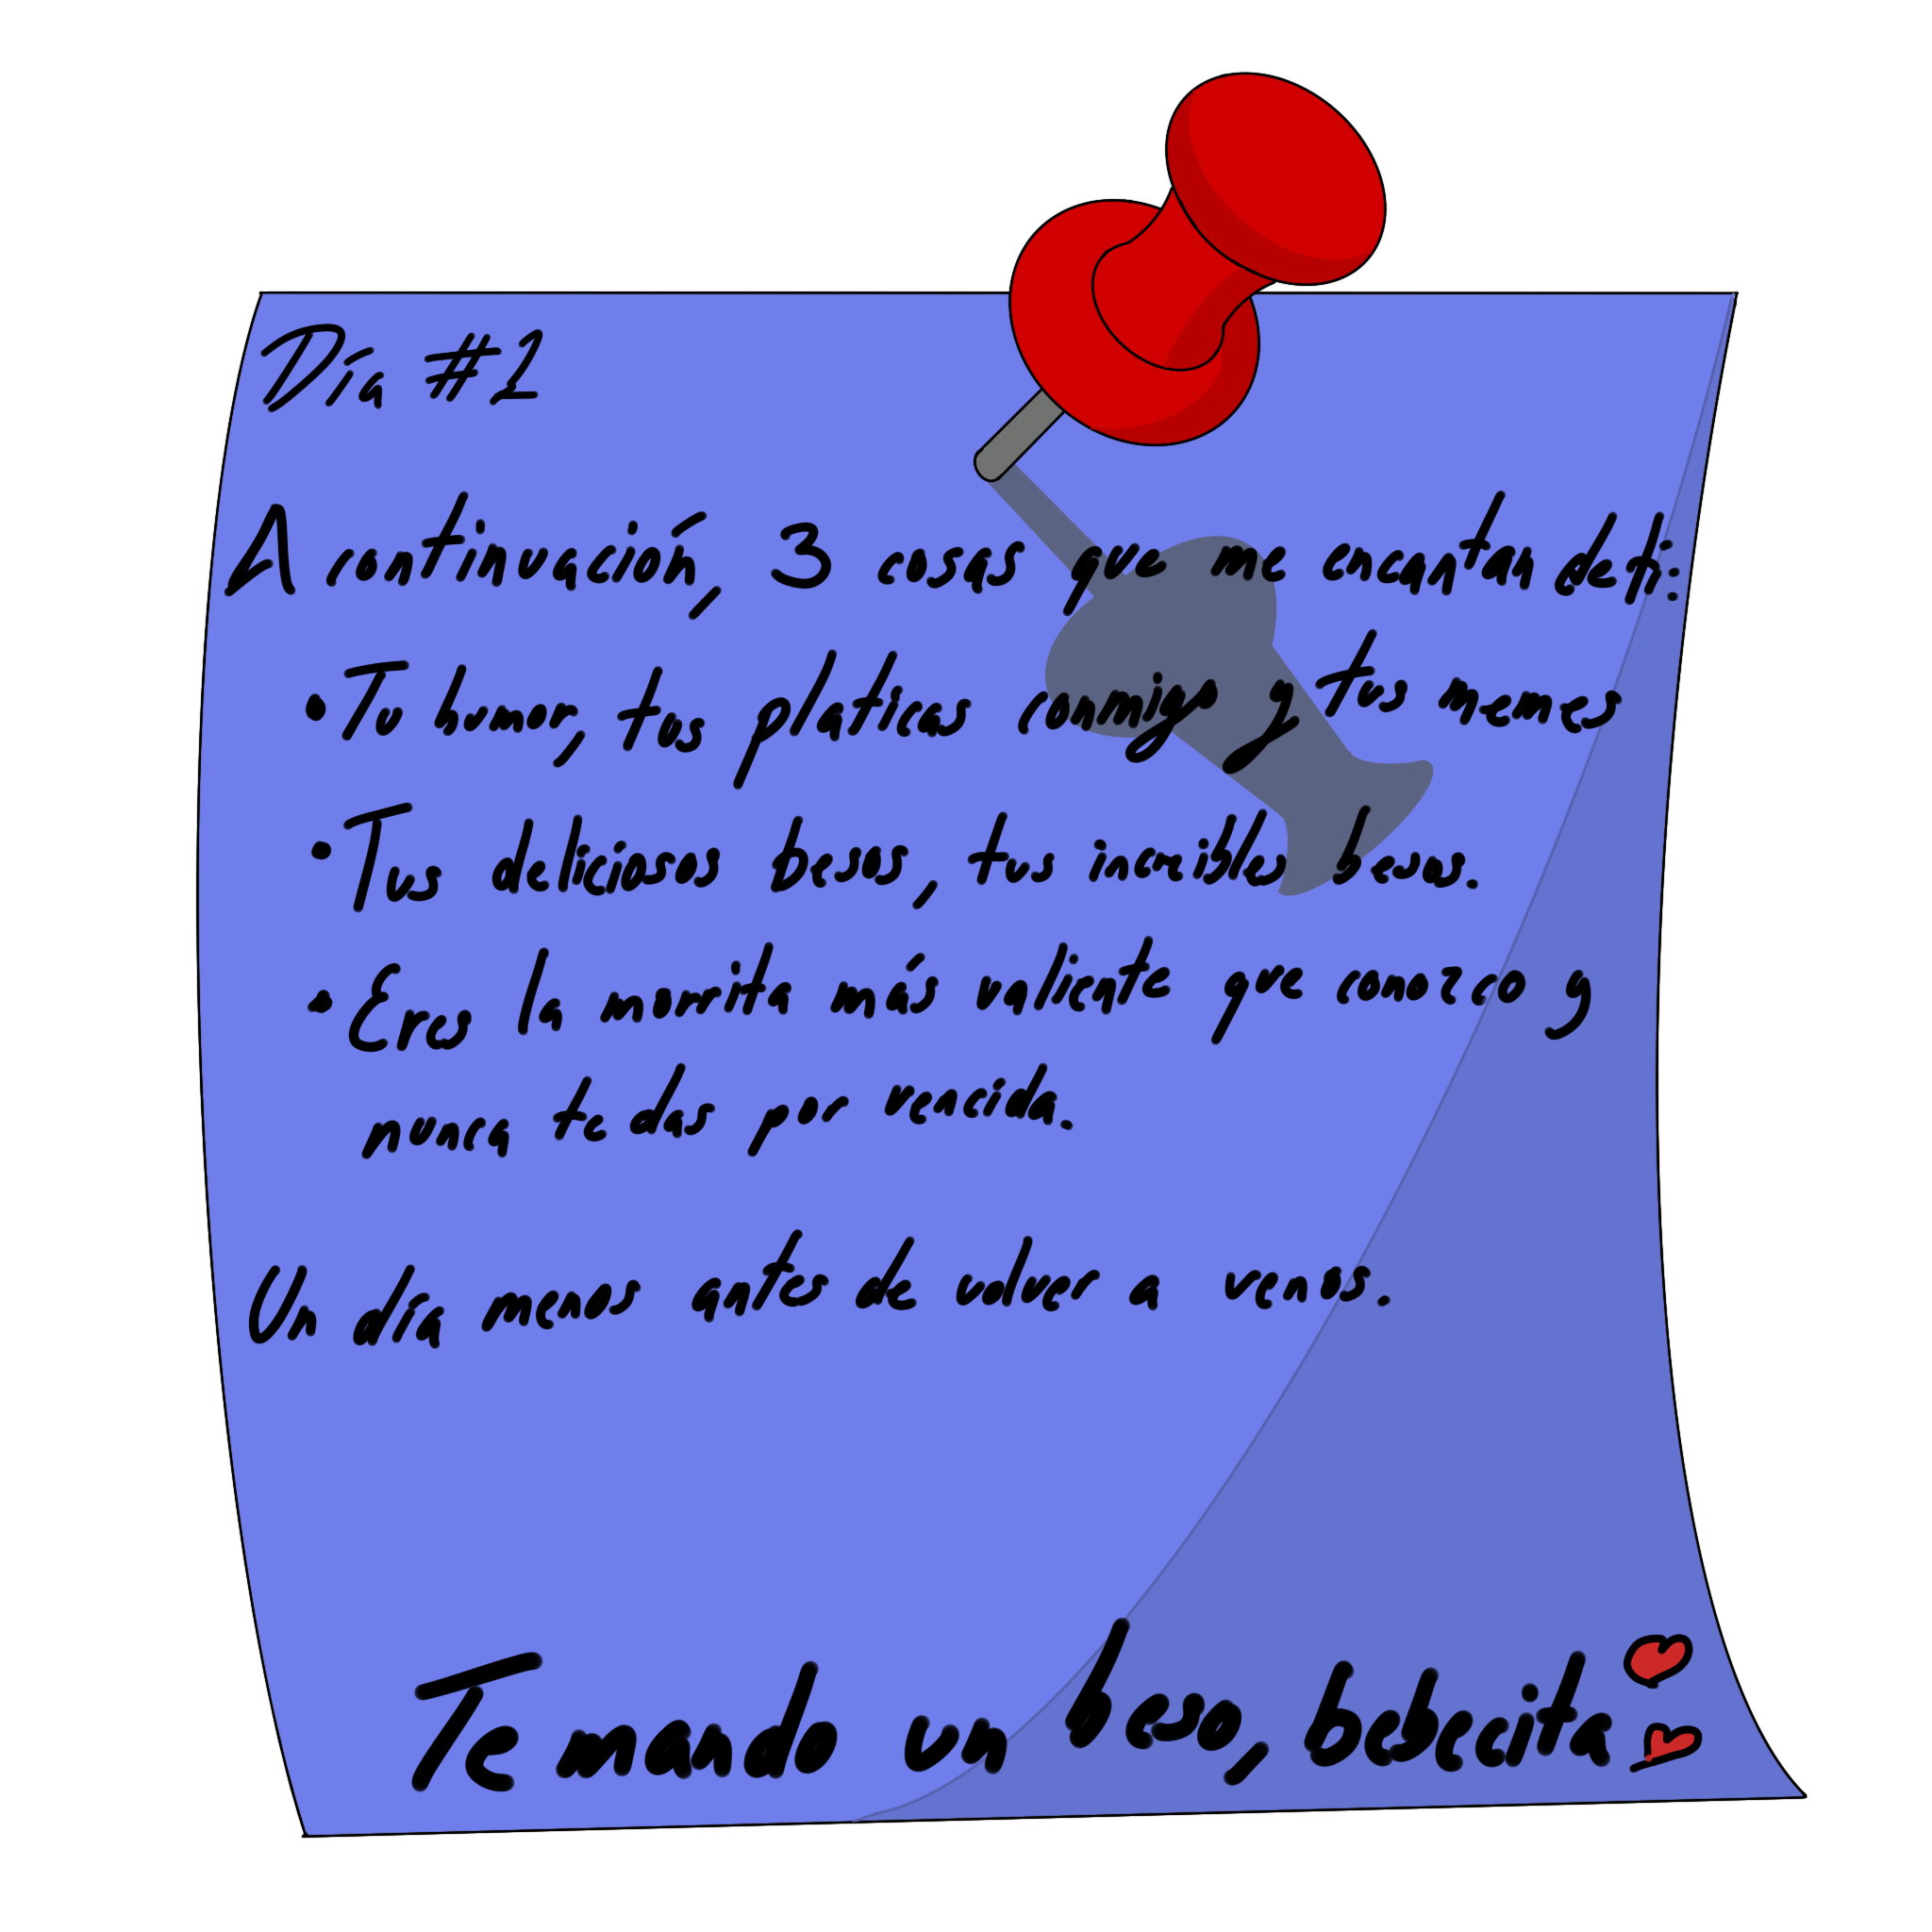 Día #2
A continuación, 3 cosas que me encantan de ti:
• Tu humor, tus pláticas conmigo y tus memes
• Tus deliciosos besos, tus increíbles besos.
• Eres la amorcita más valiente que conozco y
nunca te das por vencida.
Un día menos antes de volver a vernos.
Te mando un beso, bebecita